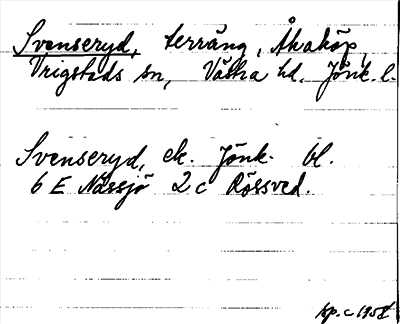 Svenseryd, terräng, Åkaköp,
Vrigstads sn, Västra hd. Jönk. l.
Svenseryd, ek. Jönk. bl.
6 E Nässjö 2 c Rössved.